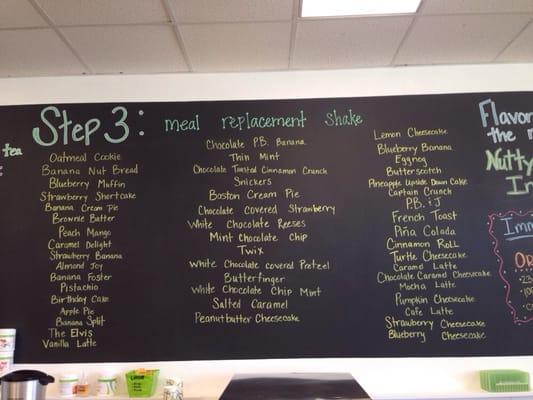 Step 3: meal replacement shake
tea
Oatmeal Cookie
Banana Nut Bread
Blueberry Muffin
Strawberry Shortcake
Banana Cream Pie
Brownie Batter
Peach Mango
Caramel Delight
Strawberry Banana
Almond Joy
Banana Foster
Pistachio
Birthday Cake
Apple Pie
Banana Split
The Elvis
Vanilla Latte
Chocolate P.B. Banana
Thin Mint
Chocolate Toasted Cinnamon Crunch
Snickers
Boston Cream Pie
Chocolate Covered Strawberry
White Chocolate Reeses
Mint Chocolate Chip
Twix
White Chocolate Covered Pretzel
Butterfinger
White Chocolate Chip Mint
Salted Caramel
Peanutbutter Cheesecake
Lemon Cheesecake
Blueberry Banana
Eggnog
Butterscotch
Pineapple Upside Down Cake
Captain Crunch
P.B. & J
French Toast
Piña Colada
Cinnamon Roll
Turtle Cheesecake
Caramel Latte
Chocolate Caramel Cheesecake
Mocha Latte
Pumpkin Cheesecake
Cafe Latte
Strawberry Cheesecake
Blueberry Cheesecake
Flavor
the
Nutty
In
Imm
Or